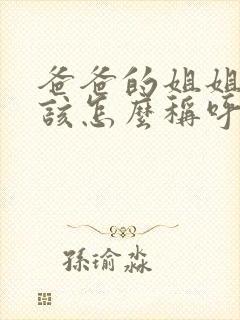 爸爸的姐姐
該怎麼稱呼
孫瑜淼